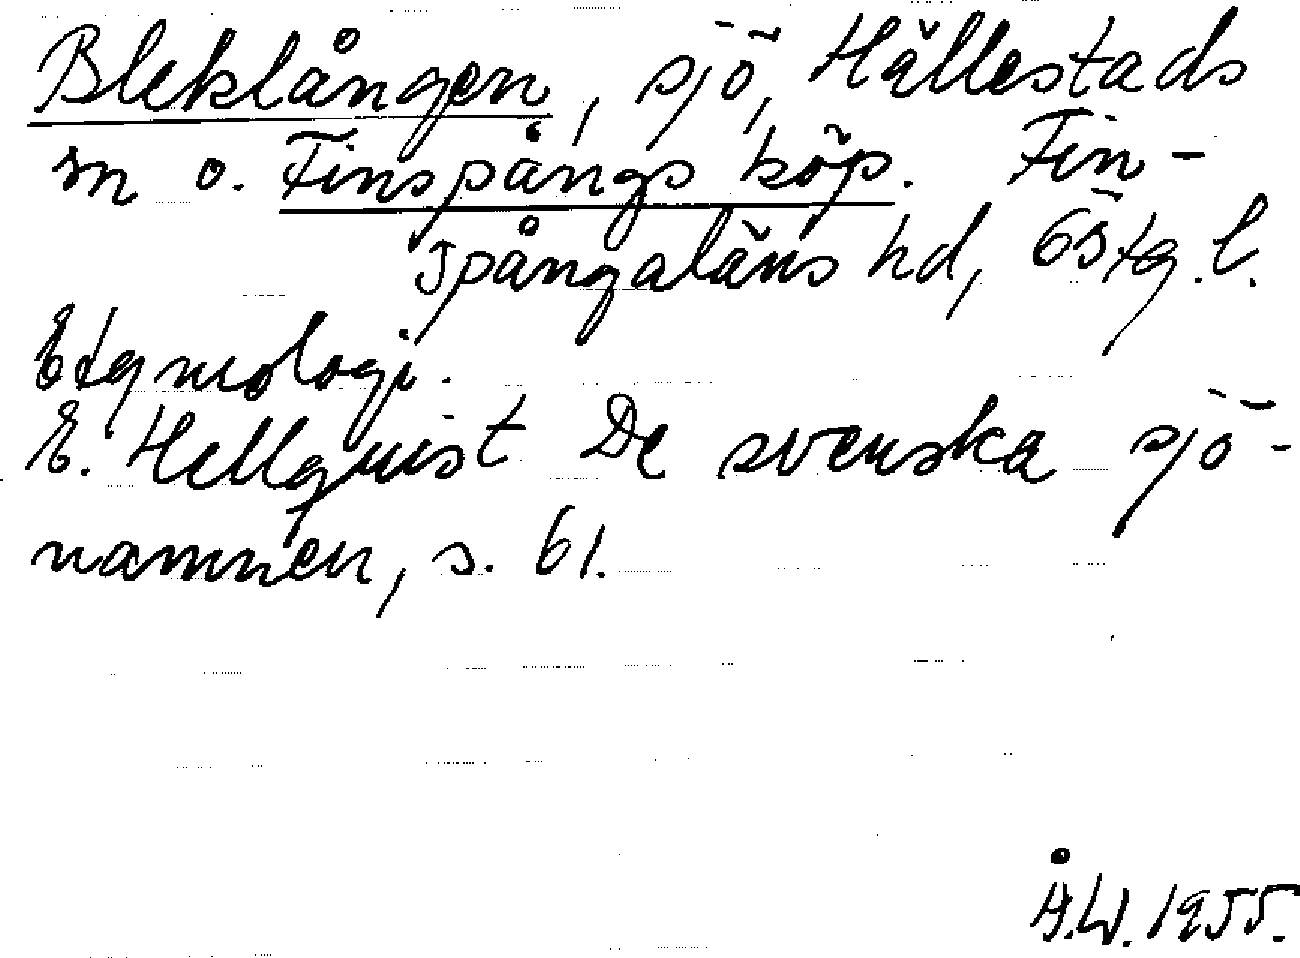 Bleklången, sjö, Hällestads
sn o. Finspångs köp. Fin-
spångaläns hd, Östg. l.
Etymologi.
E. Hellquist De svenska sjö-
namnen, s. 61.
Å.W. 1955.